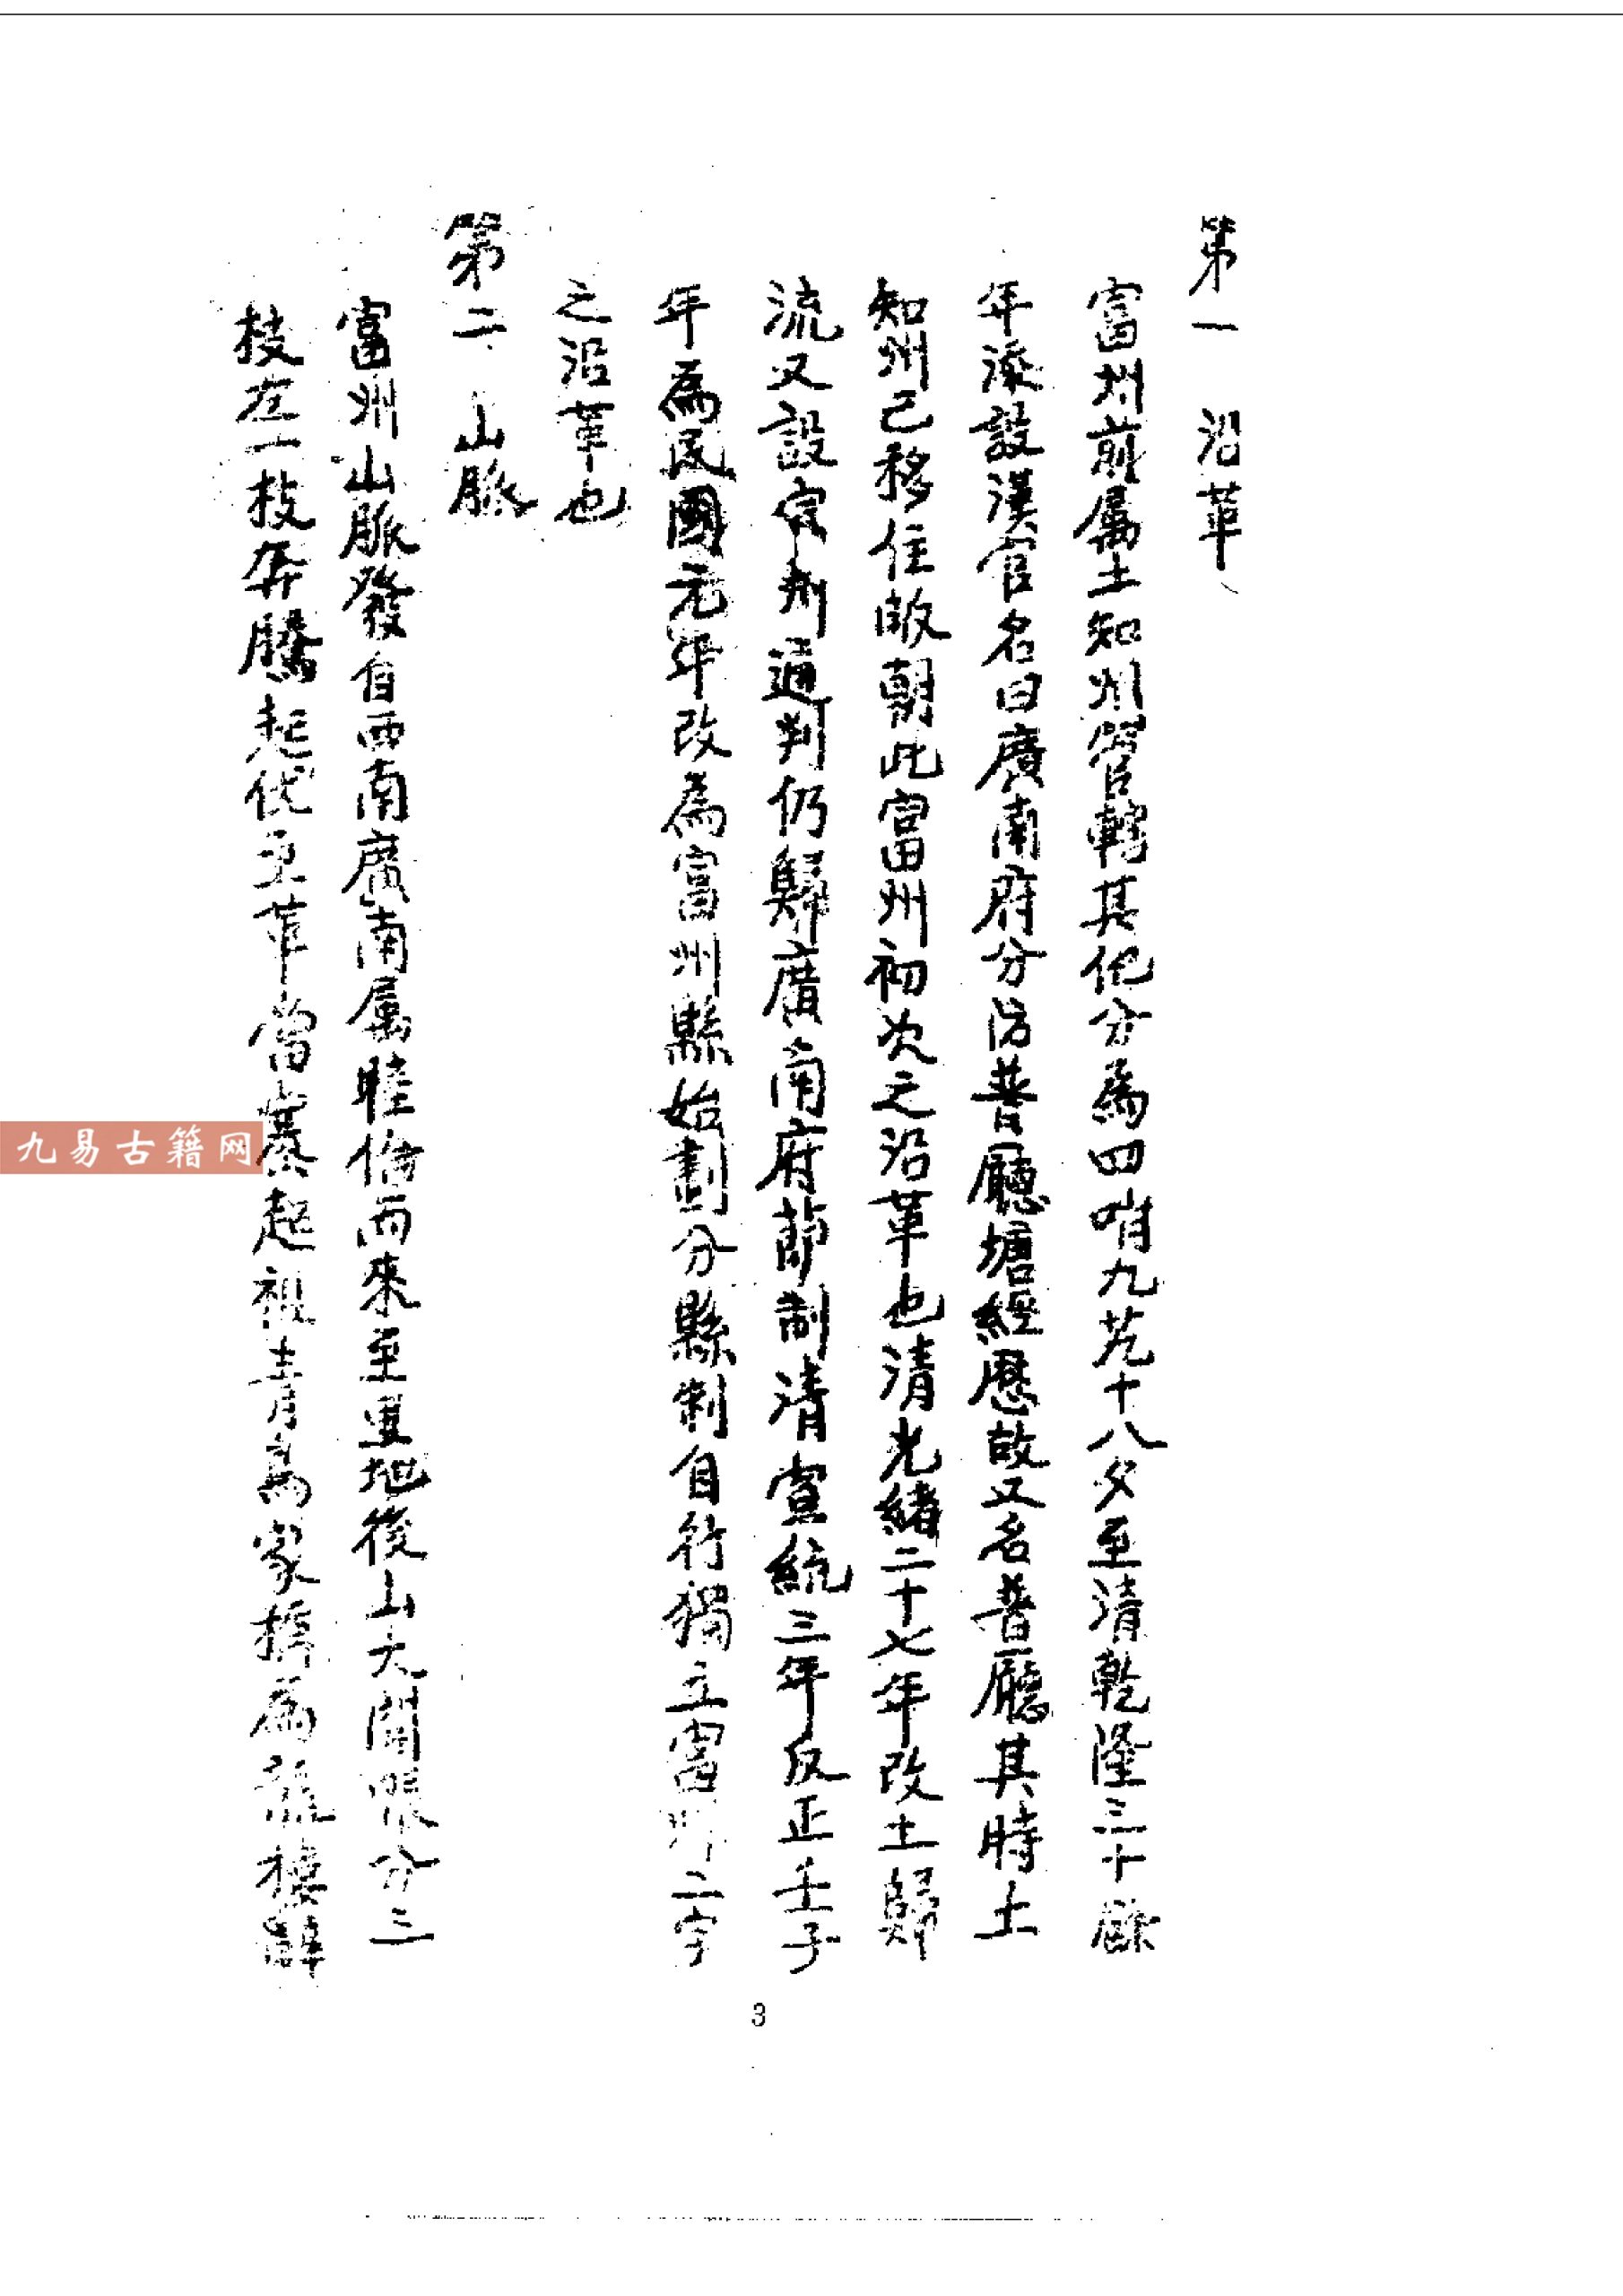 第一 沿革
富州前屬土知州管轄其他分為四哨九艽十八夕至清乾隆三十餘
年添設漢官名曰廣南府分防普廳塘經歷故又名普廳其時土
知州已移住皈朝此富州初次之沿革也清光緒二十七年改土歸
流又設富州通判仍歸廣南府節制清宣統三年反正壬子
年為民國元年改為富州縣始劃分縣制自行獨立富州二字
之沿革也
第二 山脈
富州山脈發自西南廣南屬睦倫而來至里地後山大開帳分三
枝左一枝奔騰起伏至革當寨起祖青鳥家稱為龍樓
九易古籍网
3